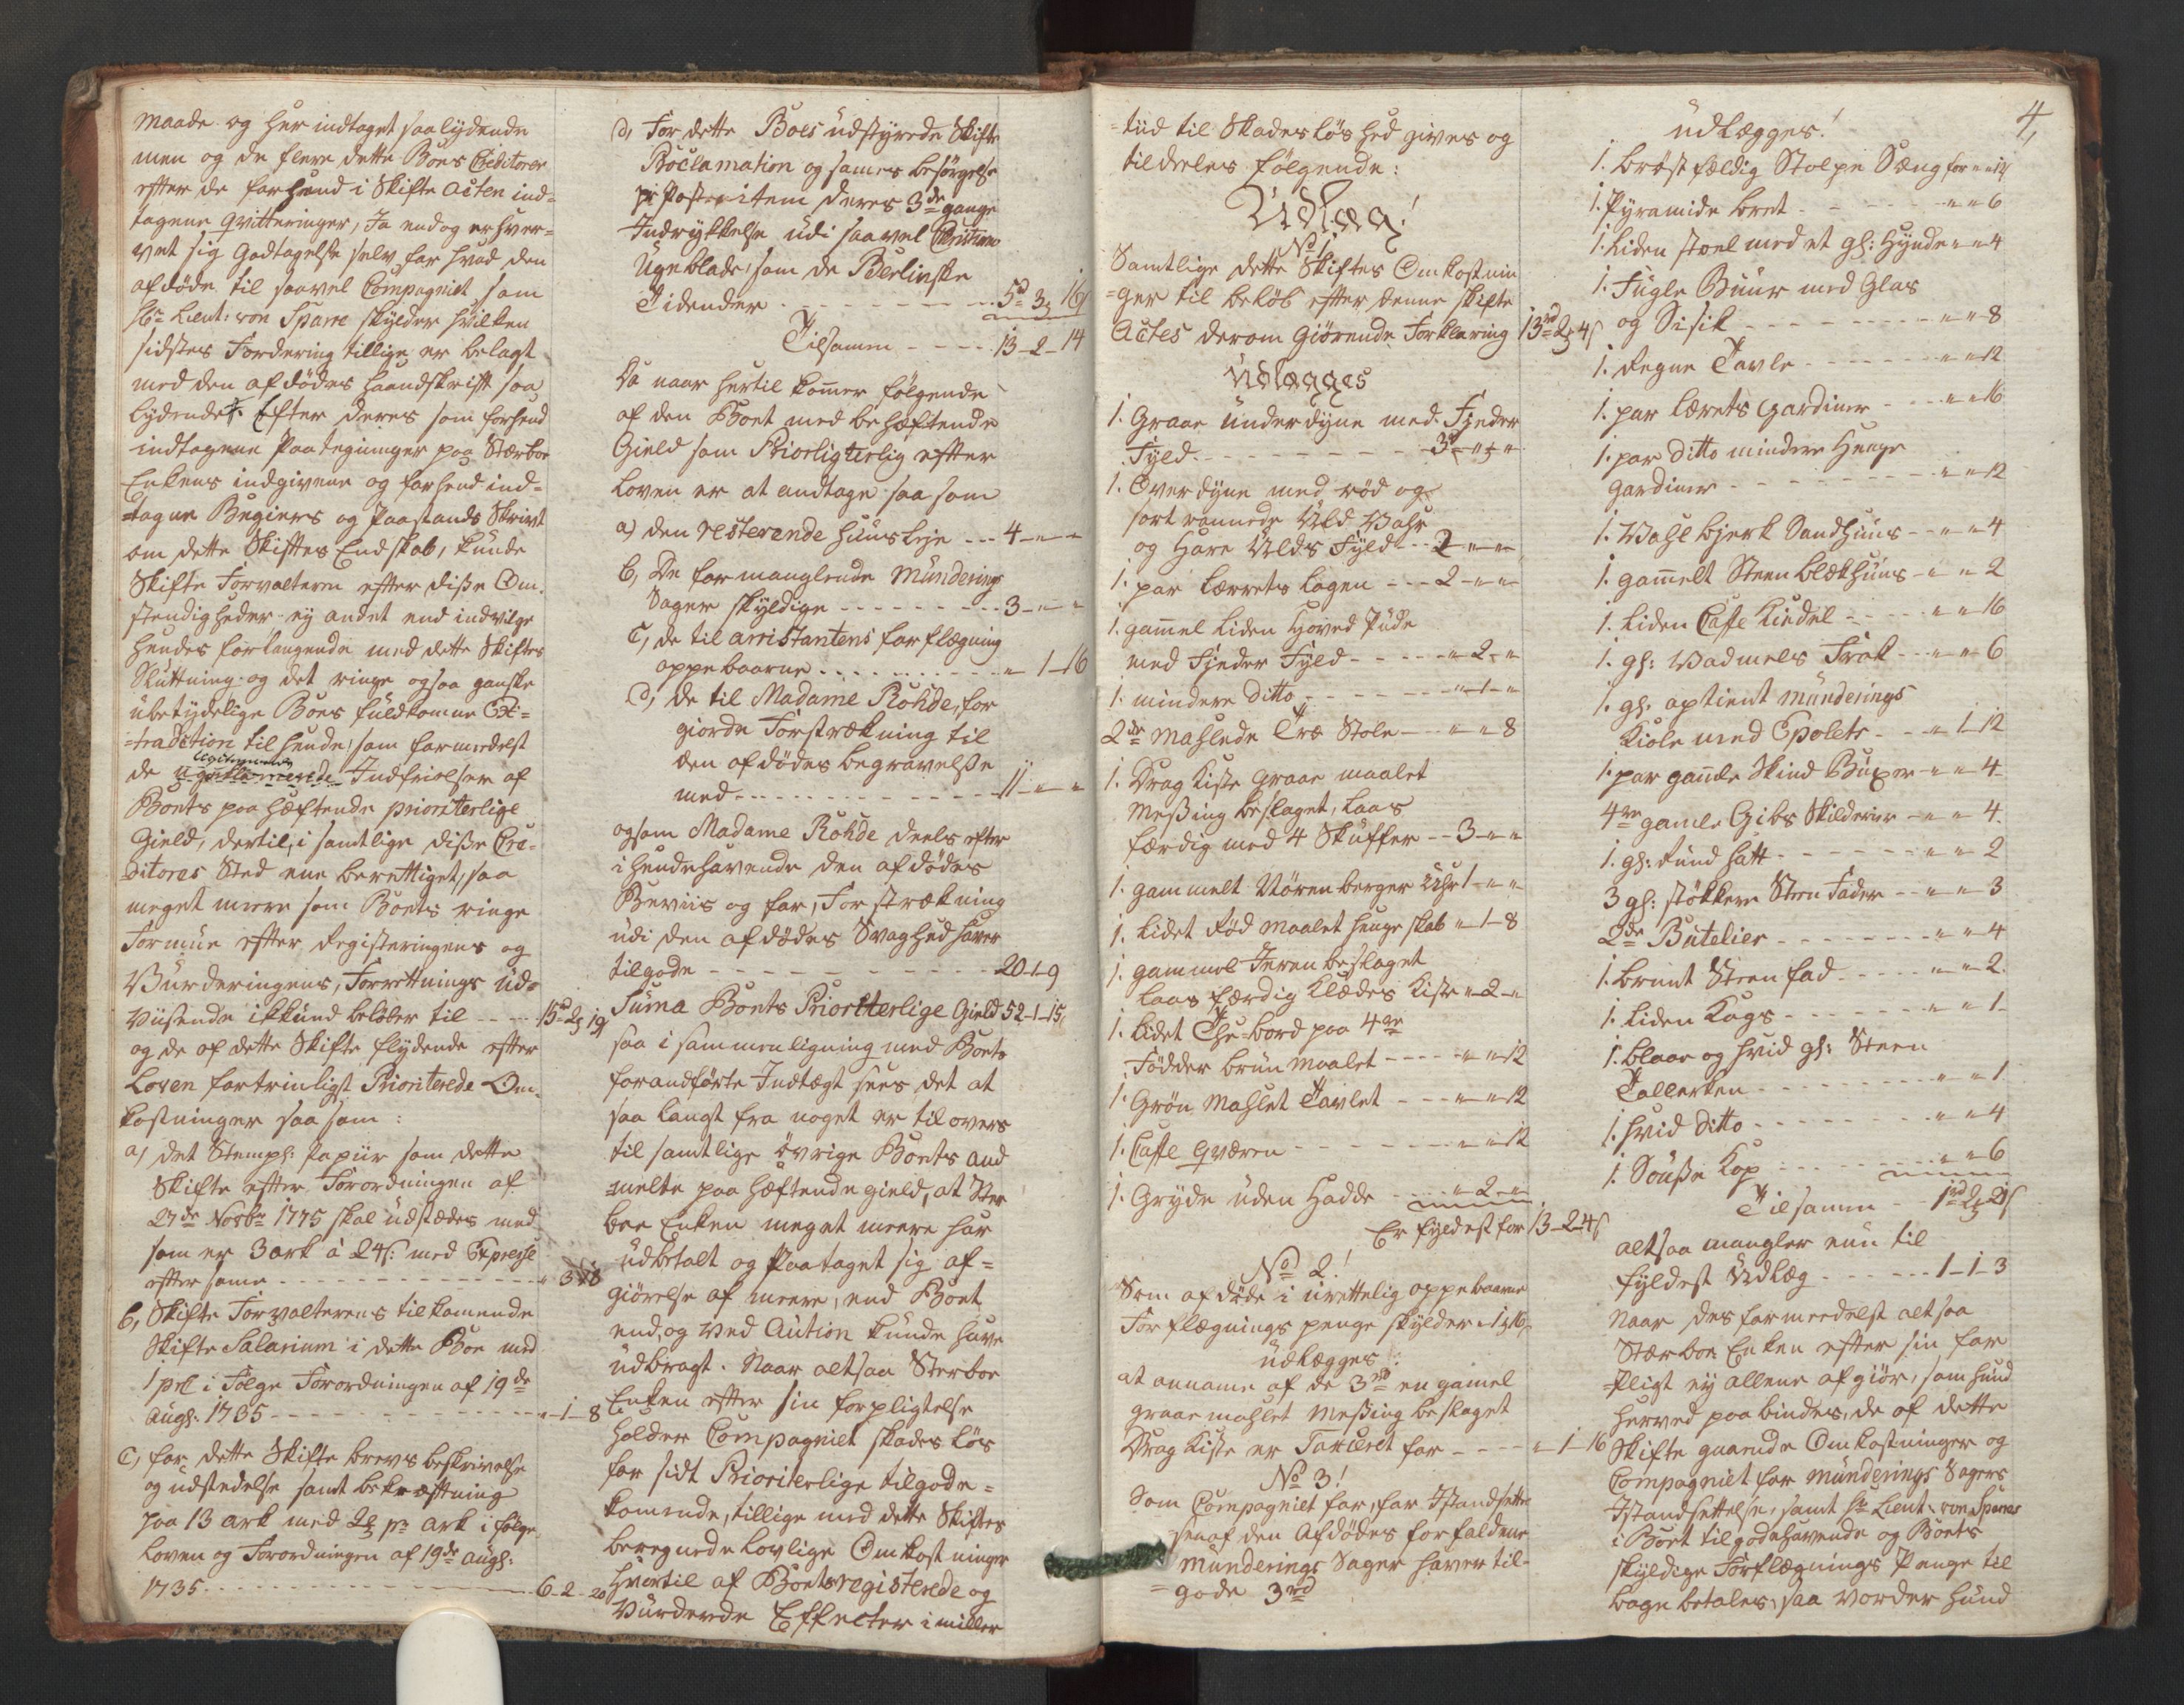 maade og her indtaget saalydende
men og de flere dette Boes Creditorer
efter de forhend i Skifte Acten ind-
tagene Qvitteringer, Ja endog erhver-
vet sig Godtagelse selv for hvad den
afdöde til saavel Compagniet som
Hr Lieut: von Sparre skylder hvilken
sidstes Fordering tillige er belagt
med den afdödes Haandskrift saa
lydende. Efter deres som forhend
indtagene Paategninger paa Stærboe
Enkens indgivene og forhend ind-
=tagne Begiers og Paastands Skrivt
om dette Skiftes Endskab, kunde
Skifte Forvalteren efter disse Om-
stendigheder ey andet end indvilge
hendes forlangende med dette Skiftes
Sluttning og det ringe ogsaa ganske
ubetydelige Boes fuldkomne Ex-
=tradition til hende, som formedelst
de Indfrielser af
Boets paa hæftende prioriterlige
Gield, dertil, i samtlige disse Cre-
ditores Sted ene berettiget, saa
meget meere som Boets ringe
Formue efter Registeringens og
Vurderingens, Forrettnings ud-
viisende ikkund belöber til .... 15rd 2 19
og de af dette Skifte flydende efter
Loven fortrinligst Prioriterede Om-
kostninger saa som:
a) det Stempl: Papiir som dette
Skifte efter Forordningen af
27de Novbr 1775 skal udstædes med
som er 3 ark à 24s: med Expresse
efter same - - - - " 3
b, Skifte Forvalterens tilkomende
Skifte Salarium i dette Boe med
1 pCt i Fölge Forordningen af 19de
Augs: 1735 - - - - " 1 - 8
C, for dette Skifte brevs beskrivelse
og udstedelse samt bekræftning
paa 13 ark med pr ark i fölge
Loven og Forordningen af 19de Augs:
1735 - - - - 6 - 2 - 20
d, For dette Boes udstyrede Skifte
Proclamation og sames besörgelse
pr Post item deres 3de gange
Indrykkelse udi saavel Christiania
Ugeblade, som de Berlinske
Tidender - - - - 5rd 3 16
Tilsamen - - - - 13 - 2 - 14
Da naar hertil komer fölgende
af den Boet med behæftende
Gield som Prioritterlig efter
Loven er at andtage saa som
a) den resterende Huusleje - - - 4 - " - "
b, De for manglende Munderings
Sager skyldige - - - - 3 - " - "
C, de til arristantens forflægning
oppebaarne - - - - " 1 - 16
d, de til Madame Rohde, for
giorde Forstrækning til
den afdödes begravelse
med - - - - 11 - " - "
ogsom Madame Rohde deels efter
i hendehavende den afdödes
Beviis og for, Forstrækning
udi den afdödes Svaghed haver
tilgode - - - - 20 - 1 - 9
Suma Boets Prioritterlige Gield 52 - 1 - 15,
saa i sammenligning med Boets
forandförte Indtægt sees det at
saa langt fra noget er tilovers
til samtlige övrige Boets and
=meldte paa hæftende gield, at Ster
boe Enken meget meere har
udbetalt og Paataget sig af=
giörelse af meere, end Boet
end, og ved Aution kunde have
udbragt. Naar altsaa Sterboe
Enken efter sin forpligtelse
holder Compagniet skades lös
for sidt Prioriterlige tilgode=
komende, tillige med dette Skiftes
beregnede lovlige Omkostninger
Hvertil af Boets registerede og
Vurderde Effecter imiller
=tiid til Skadeslös hed gives og
tildeeles fölgende:
Udlæg!
No 1,
Samtlige dette Skiftes Omkostnin
=ger til belöb efter denne skifte
Actes derom giörende Forklaring 13rd 2 4s
Udlægges
1. Graae Underdyne med Fjeder
Fyld - - - - 3rd " "
1. Overdyne med röd og
sort rannede Uld Vahr
og Hare Ulds Fyld - - 2 - " - "
1. par Lærrets Lagen - - - 2 - " - "
1. gamel liden Hoved Pude
med Fjeder Fyld - - - - " 2 - "
1. mindere ditto - - - - " 1 - "
2de Mahlede Træ Stole - - " - " 8
1. Drag Kiste Graae maalet
Messing beslaget, Laas
færdig med 4 Skuffer - - 3 - " - "
1. gammelt Nörenberger Uhr 1 - " - "
1. Lidet Röd maalet henge skab " 1 - 8
1. gammel Jeren beslaget
Laas færdig Klædes Kiste " 2 - "
1. Lidet The-bord paa 4re
Födder brun maalet - - - - " " 12
1. Grön mahlet Tavlet - - - " " 12
1. Caffe Qværen - - - - " " 12
1. Gryde uden Hadde - - - " 2 - "
Er fyldest for 13 - 2 - 4s
No 2!
Som afdöde i urettelig oppebaarne
Forflægnings penge skylder " 1 16
udlægges:
at annamme af de 3rd en gamel
graae mahlet Messing beslaget
Drag Kiste er Taxeret for - - - - " 1 - 16
No 3!
Som Compagniet for, for Istandsette
=sen af den Afdödes forfaldene
Munderings Sager haver til-
=gode 3rd
4,
udlægges!
1. bröstfældig Stolpe Sæng for " "
1. Pyramide bret - - - - " " 6
1. Liden stoel med et gl: Hynde " " 4
1. Fugle Buur med Glas
og Sisik - - - - " " 8
1. Regne Tavle - - - - " " 12
1. par Lærets gardiner - - - " " 16
1. par ditto mindere Henge
gardiner - - - - " " 12
1. Wahlbjerk Sandhuus - - " " 4
1. gamelt Steen Blækhuus - " " 2
1. liden Caffe Kiedel - - - " " 16
1. gl: Vadmels Frak - - " " 6
1. gl: aptient munderings
Kiole med Epolets - - " 1 12
1. par gamle Skind Buxer - " " 4
4re gamle Gibs Skilderier - " " 4.
1. gl: Rund hatt - - - - " " 2
3 gl: stökkere Steen Fader - - " " 3
2de Butelier - - - - " " 4
1. bruut Steen fad - - - - " " 2.
1. liden Kags - - - - " " 1
1. blaae og hvid gl: Steen
Tallerken - - - - " " 1.
1. hvid ditto - - - - " " 4
1. Sousse Kop - - - - " " 6
Tilsamen - 1rd 2 21s
altsaa mangler nun til
fyldest Udlæg - - - - 1 - 1 - 3
Naar des formeedelst altsaa
Stærboe Enken efter sin for
=pligt ey allene afgiör, som hund
herved paa bindes, de af dette
Skifte gaaende Omkostninger og
Compagniet for munderings Sagers
Istandsettelse, samt Hr Lieut: von Sparres
i Boet tilgodehavende og Boets
skyldige Forflægnings Penge til
bage betales, saa vorder hund